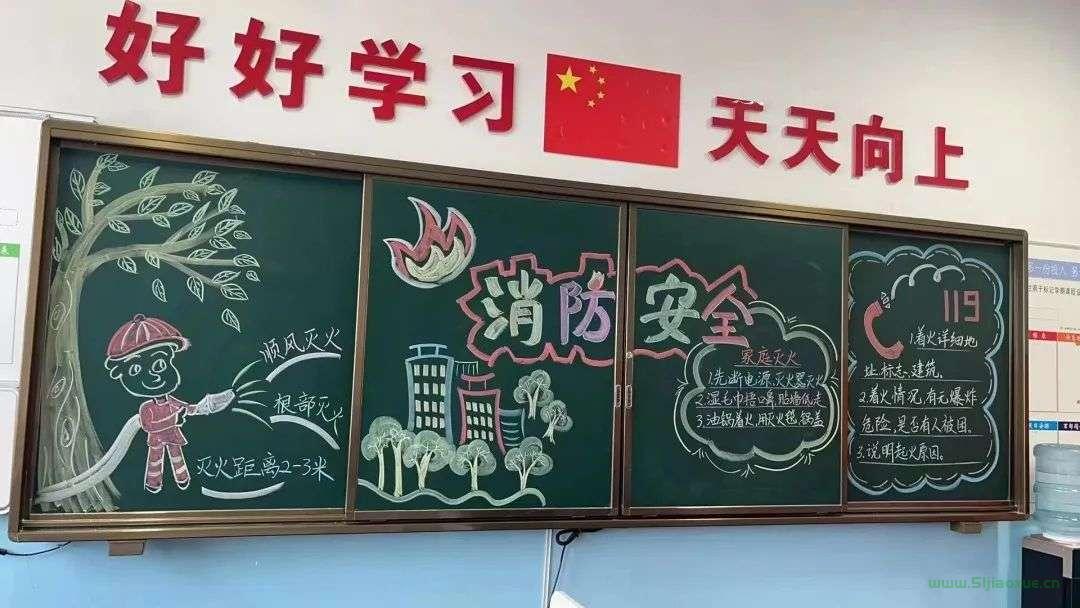 好好学习 天天向上
消防安全
顺风灭火
根部灭火
灭火距离2-3米
家庭灭火
1.先断电源、灭火器灭火
2.湿毛巾捂口鼻贴墙低走
3.油锅着火,用灭火毯、锅盖
119
1.着火详细地
址、标志、建筑。
2.着火情况,有无爆炸
危险,是否有人被困。
3.说明起火原因。
www.51jiaoxue.cn